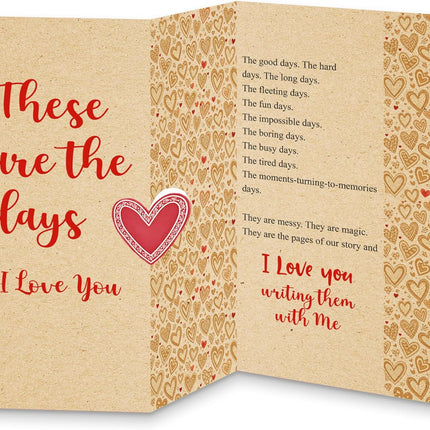 These
are the
days
I Love You
The good days. The hard
days. The long days.
The fleeting days.
The fun days.
The impossible days.
The boring days.
The busy days.
The tired days.
The moments-turning-to-memories
days.
They are messy. They are magic.
They are the pages of our story and
I Love you
writing them
with Me